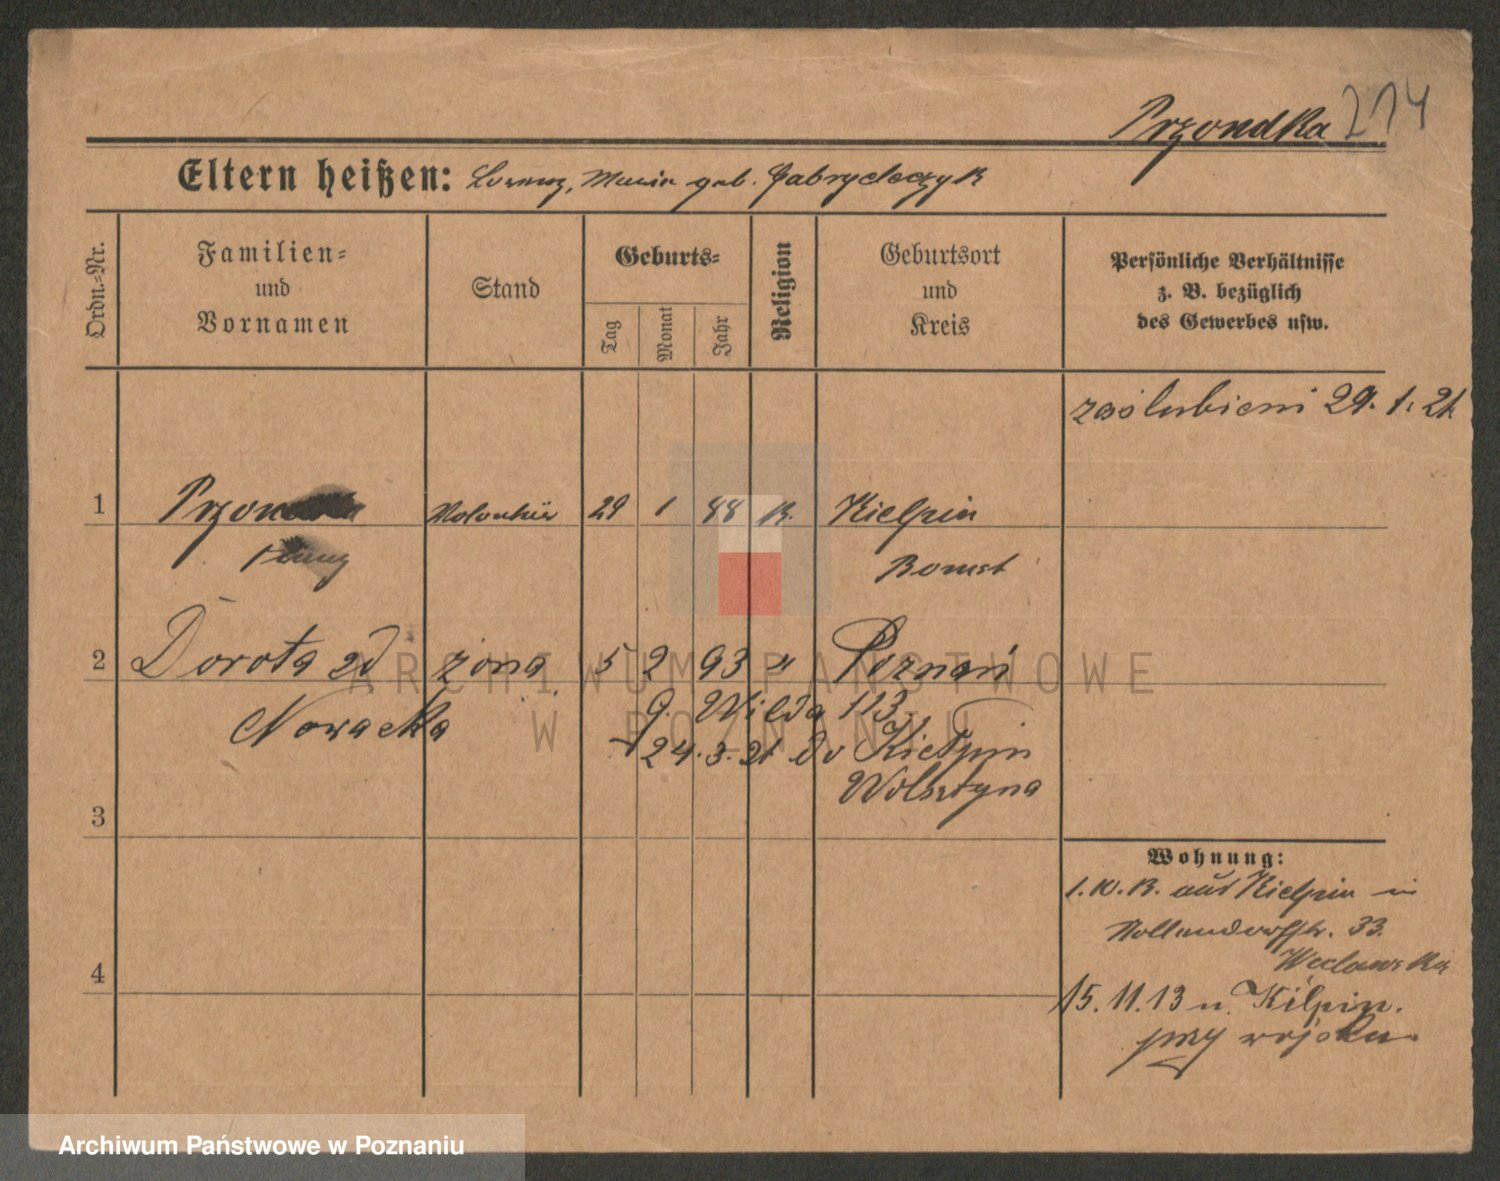 Przondka 214
Eltern heißen: Lorenz, Maria geb.
Ordn.-Nr.
Familien-
und
Vornamen
Stand
Geburts-
Tag
Monat
Jahr
Religion
Geburtsort
und
Kreis
Persönliche Verhältnisse
z. B. bezüglich
des Gewerbes usw.
zaślubieni 29. 1. 21
1 29 1 88 K. Kielpin
Bomst
2 Dorota zd żona 5 2 93 " Poznań
Nowacka
G. Wilda 113
24. 3. 21 do Kiełpin
Wolsztyna
3
Wohnung:
1. 10. 12. aus Kielpin in
Nollendorfstr. 33.
4
15. 11. 13 n. Kilpin.
przy wojsku
ARCHIWUM PAŃSTWOWE
W POZNANIU
Archiwum Państwowe w Poznaniu